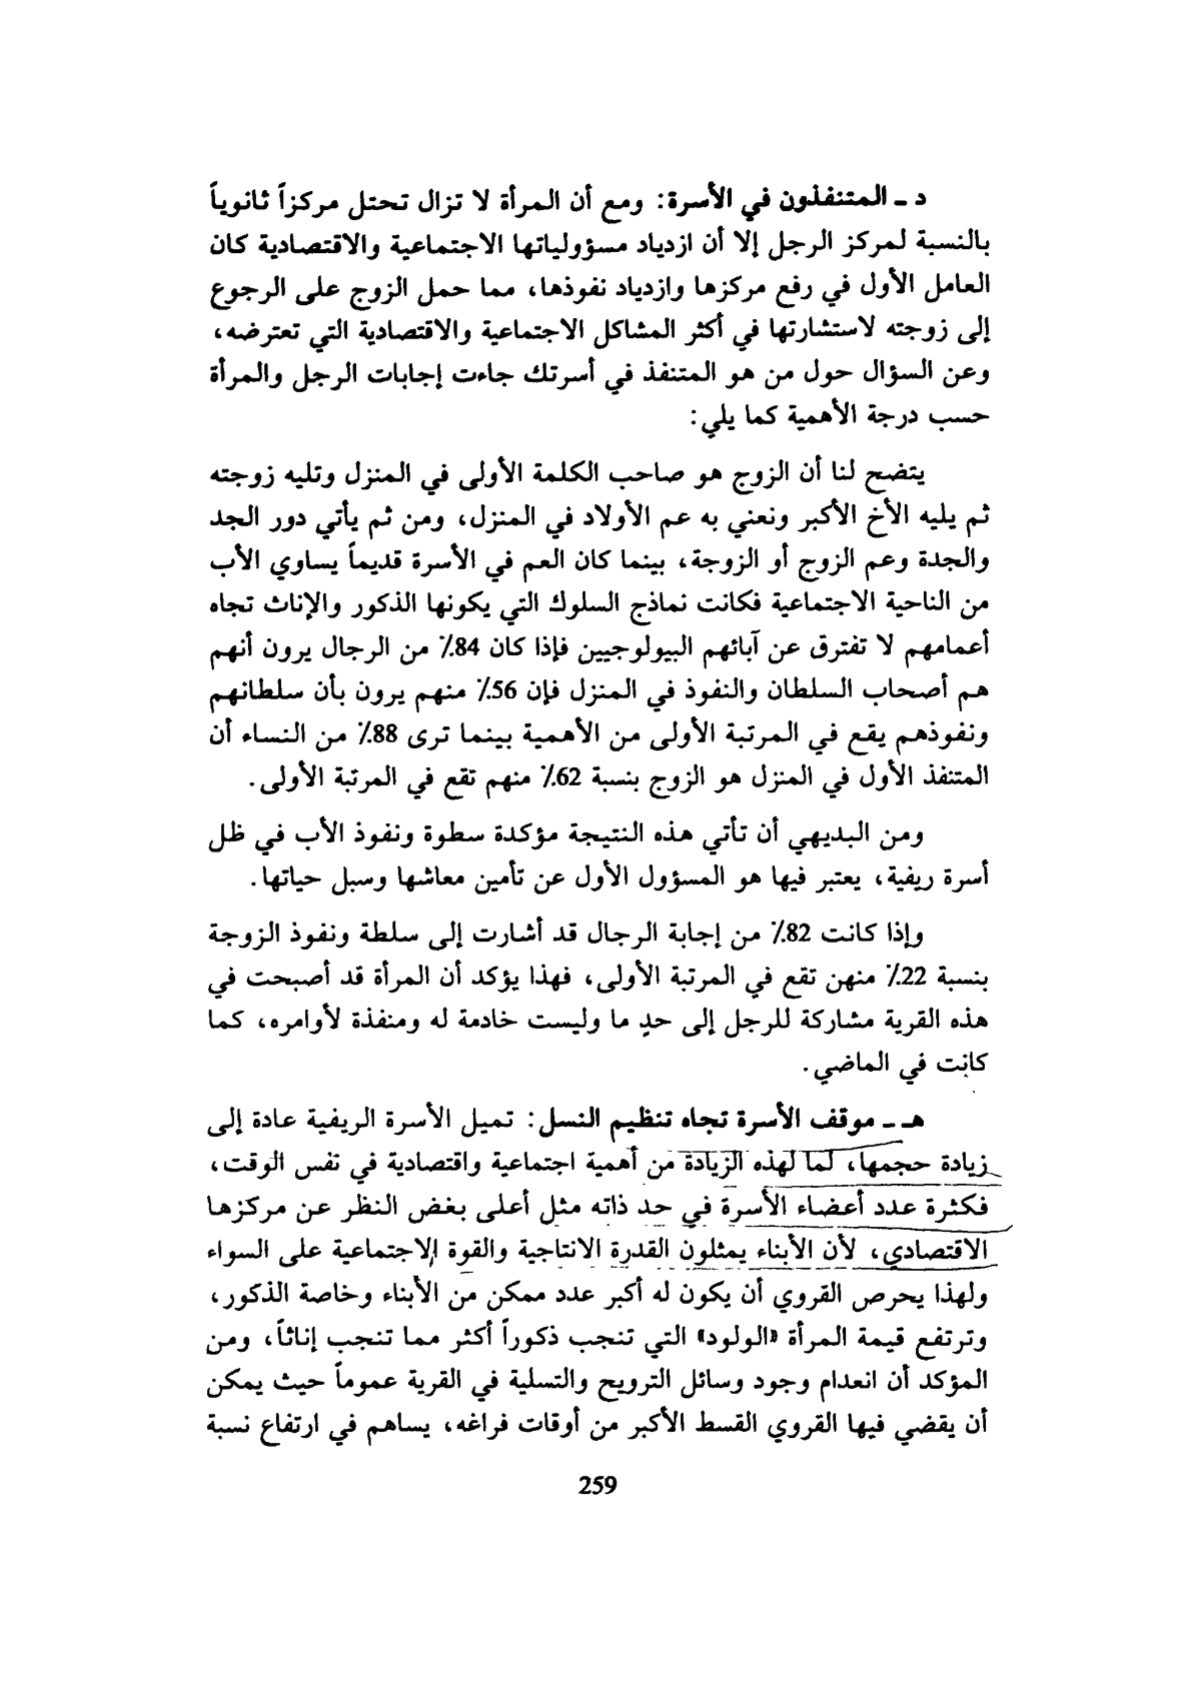 د ـ المتنفذون في الأسرة: ومع أن المرأة لا تزال تحتل مركزاً ثانوياً
بالنسبة لمركز الرجل إلا أن ازدياد مسؤولياتها الاجتماعية والاقتصادية كان
العامل الأول في رفع مركزها وازدياد نفوذها، مما حمل الزوج على الرجوع
إلى زوجته لاستشارتها في أكثر المشاكل الاجتماعية والاقتصادية التي تعترضه،
وعن السؤال حول من هو المتنفذ في أسرتك جاءت إجابات الرجل والمرأة
حسب درجة الأهمية كما يلي:
يتضح لنا أن الزوج هو صاحب الكلمة الأولى في المنزل وتليه زوجته
ثم يليه الأخ الأكبر ونعني به عم الأولاد في المنزل، ومن ثم يأتي دور الجد
والجدة وعم الزوج أو الزوجة، بينما كان العم في الأسرة قديماً يساوي الأب
من الناحية الاجتماعية فكانت نماذج السلوك التي يكونها الذكور والإناث تجاه
أعمامهم لا تفترق عن آبائهم البيولوجيين فإذا كان 84٪ من الرجال يرون أنهم
هم أصحاب السلطان والنفوذ في المنزل فإن 56٪ منهم يرون بأن سلطانهم
ونفوذهم يقع في المرتبة الأولى من الأهمية بينما ترى 88٪ من النساء أن
المتنفذ الأول في المنزل هو الزوج بنسبة 62٪ منهم تقع في المرتبة الأولى.
ومن البديهي أن تأتي هذه النتيجة مؤكدة سطوة ونفوذ الأب في ظل
أسرة ريفية، يعتبر فيها هو المسؤول الأول عن تأمين معاشها وسبل حياتها.
وإذا كانت 82٪ من إجابة الرجال قد أشارت إلى سلطة ونفوذ الزوجة
بنسبة 22٪ منهن تقع في المرتبة الأولى، فهذا يؤكد أن المرأة قد أصبحت في
هذه القرية مشاركة للرجل إلى حدٍ ما وليست خادمة له ومنفذة لأوامره، كما
كانت في الماضي.
هـ ـ موقف الأسرة تجاه تنظيم النسل: تميل الأسرة الريفية عادة إلى
زيادة حجمها، لما لهذه الزيادة من أهمية اجتماعية واقتصادية في نفس الوقت،
فكثرة عدد أعضاء الأسرة في حد ذاته مثل أعلى بغض النظر عن مركزها
الاقتصادي، لأن الأبناء يمثلون القدرة الانتاجية والقوة الاجتماعية على السواء
ولهذا يحرص القروي أن يكون له أكبر عدد ممكن من الأبناء وخاصة الذكور،
وترتفع قيمة المرأة «الولود» التي تنجب ذكوراً أكثر مما تنجب إناثاً، ومن
المؤكد أن انعدام وجود وسائل الترويح والتسلية في القرية عموماً حيث يمكن
أن يقضي فيها القروي القسط الأكبر من أوقات فراغه، يساهم في ارتفاع نسبة
259